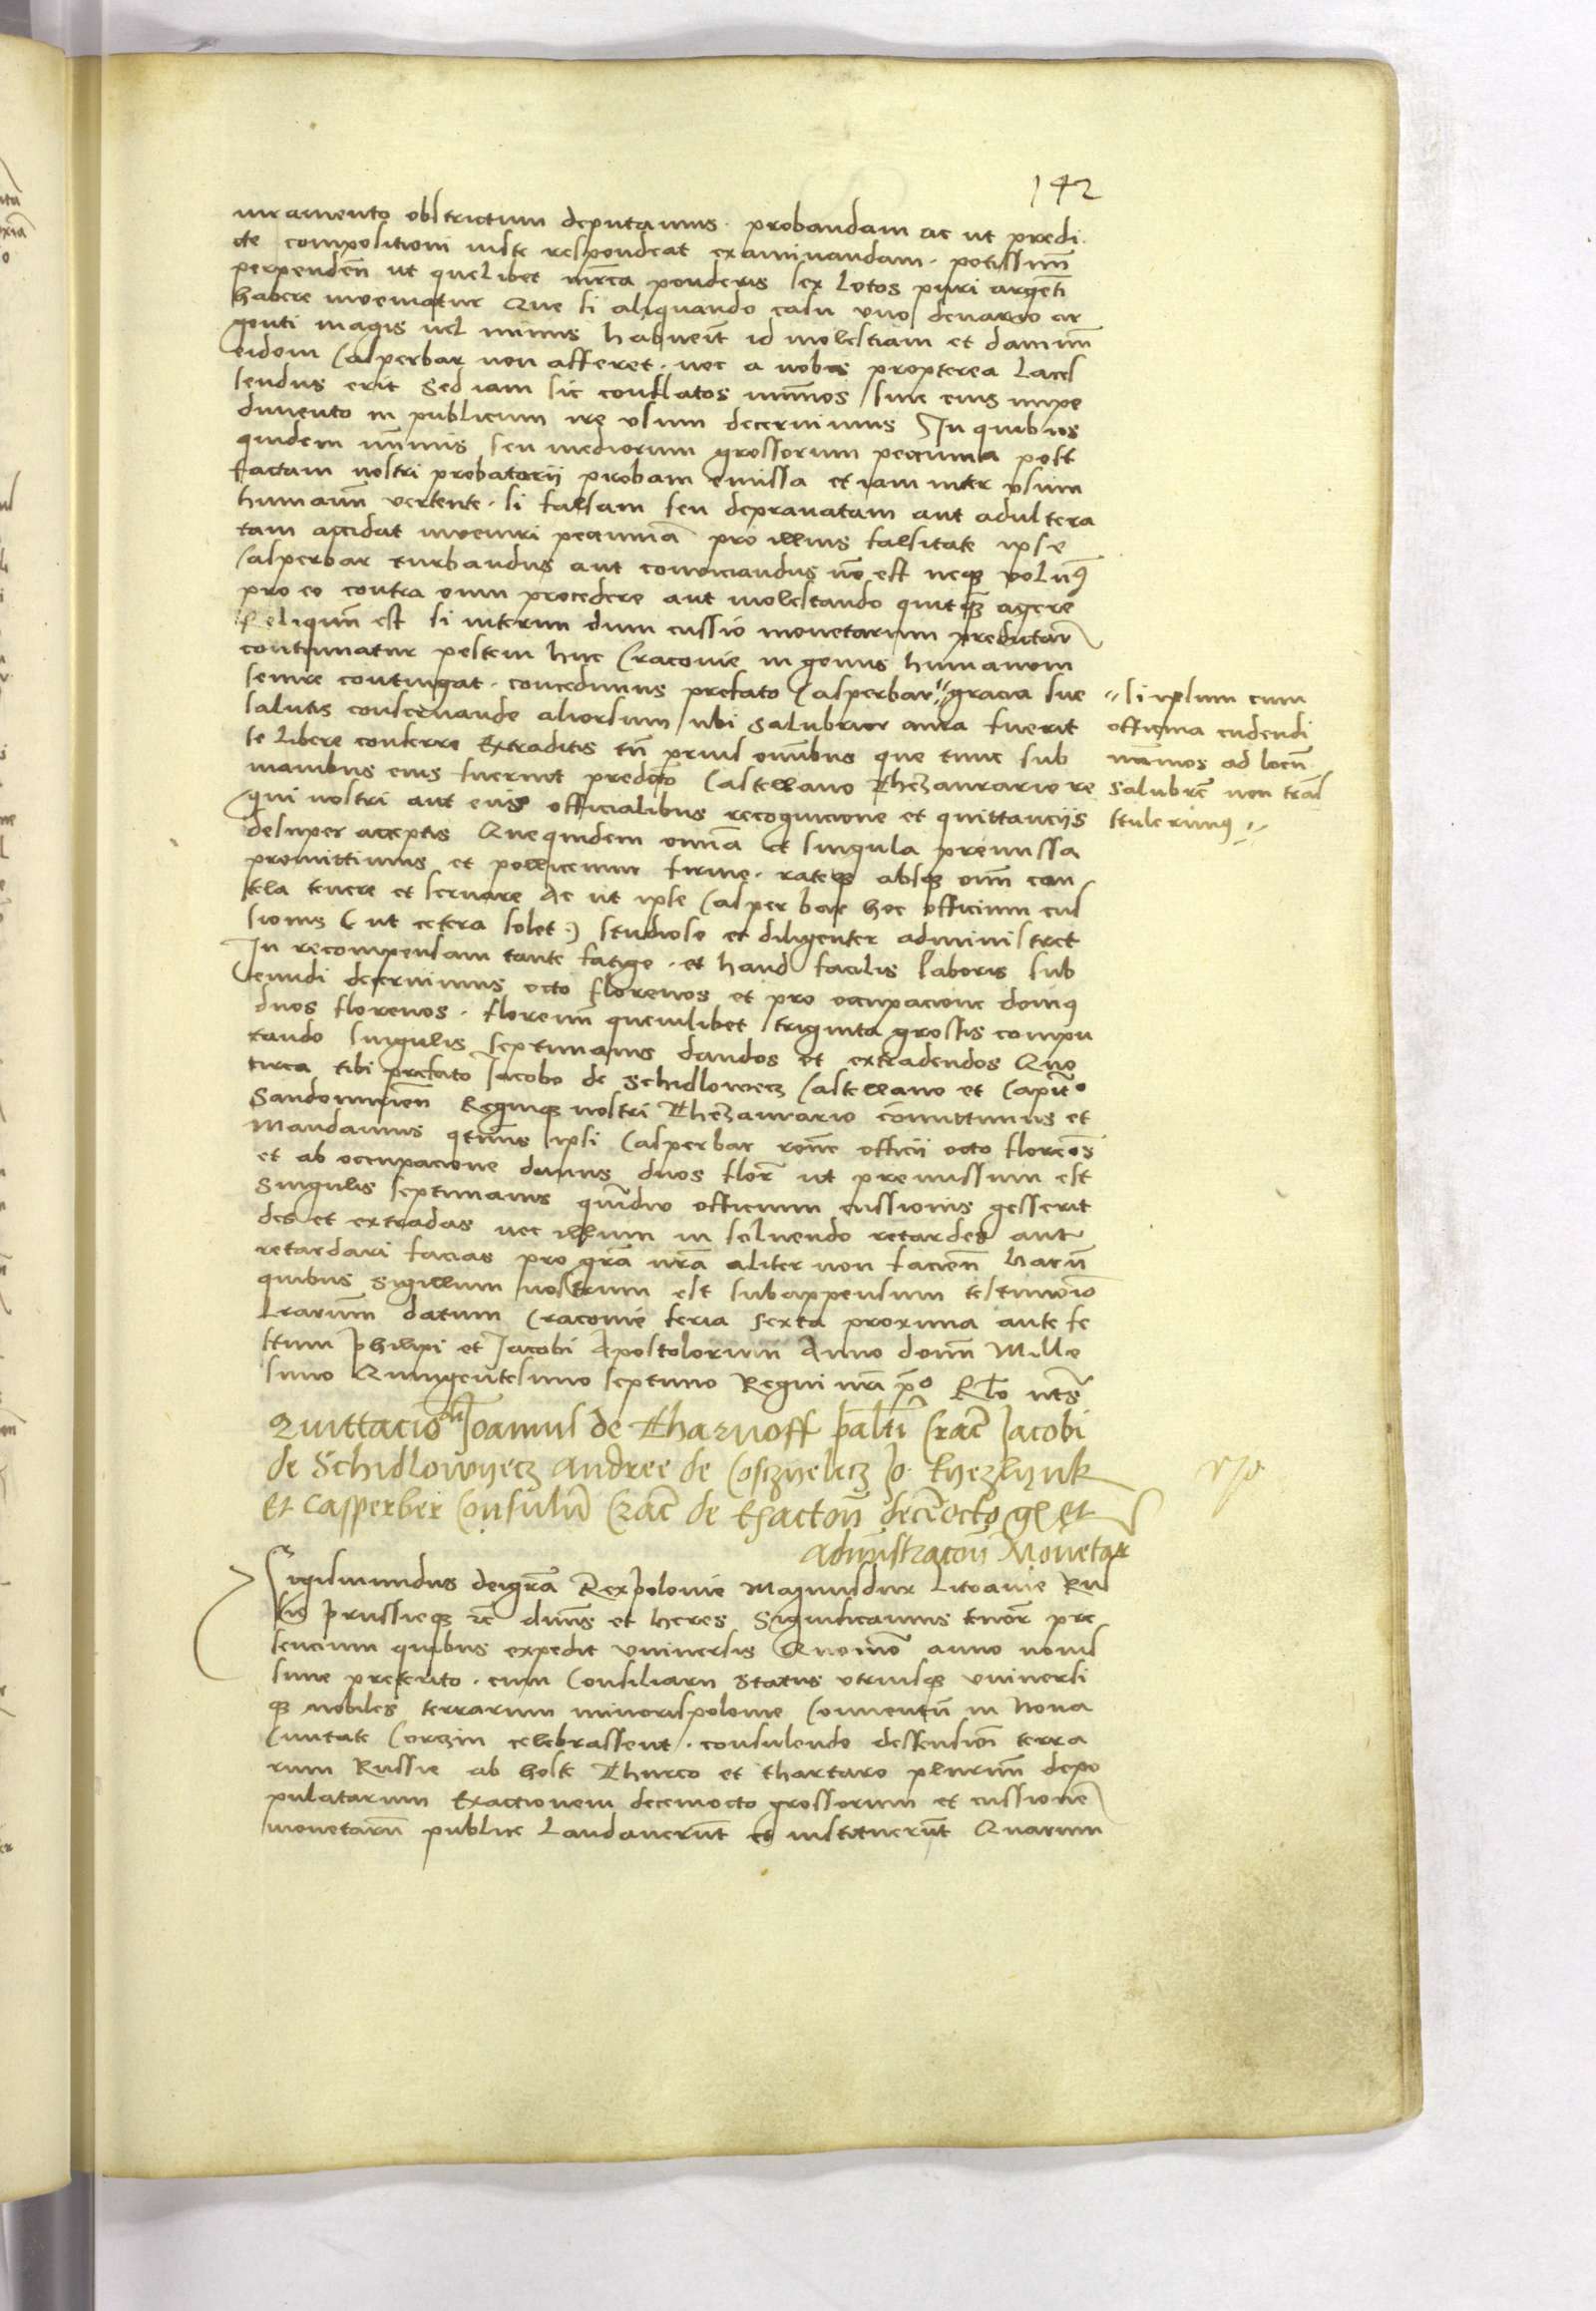 142
iuramento obstrictum deputamus. probandam ac ut predi
cte compositioni iuste respondeat examinandam. potissim̄
perpenden̄ ut quelibet mr̄ca ponderis sex lotos puri argēti
habere inveniatur Que si aliquando casu uno denario ar
genti magis vel minus habuerit id molestiam et damnū
eidem Casperbar non afferet. nec a nobis propterea laces
sendus erit Sed iam sic conflatos nūmos sine eius impe
dimento in publicum ire usum decernimus In quibus
quidem nūmis seu mediorum grossorum pecunia post
factam nostri probatorii probam emissa et iam inter usum
humanū vertente. si falsam seu depravatam aut adultera
tam accidat inveniri pecuniā pro illius falsitate ipse
Casperbar turbandus aut conviciandus nō est neqз volum9
pro eo contra eum procedere aut molestando quitqз agere
Reliquū est si interim dum cussio monetarum predictar̄
continuatur pestem huc Cracovie in genus humanum
sevire contingat. concedimus prefato Casperbar " gracia sue
salutis conservande aliorsum ubi salubrior aura fuerit
se libere conferre Extraditis tn̄ prius omībus que tunc sub
manibus eius fuerint predc̄to Castellano Thezaurario re
gni nostri aut eius officialibus recognicione et quittanciis
desuper acceptis Quequidem omnia et singula premissa
promittimus et pollicemur firme. rateqз absqз omī cau
tela tenere et servare Ac ut ipse Casperbar hoc officium cus
sionis (ut cetera solet.) studiose et diligenter administret
In recompensam tante fatige. et haud facilis laboris sub
eundi decernimus octo florenos et pro occupacione dom9
duos florenos. florenū quemlibet triginta grossis compu
tando singulis septimanis dandos et extradendos Quo
circa tibi prefato Jacobo de Schidlowecz Castellano et Capit̄o
Sandomirien̄ Regniqз nostri Thezaurario cōmittimus et
Mandamus qt̄nus ipsi Casperbar rōne officii octo florēos
et ab occupacione domus duos flor̄ ut premissum est
Singulis septimanis qūdiu officium cussionis gesserit
des et extradas nec illum in solvendo retardes aut
retardari facias pro gr̄a nr̄a aliter non facien̄ harū
quibus Sigillum nostrum est subappensum testimonio
Lr̄arum datum Cracovie feria sexta proxima ante fe
stum Philippi et Jacobi Apostolorum Anno domī Mille
simo Quingentesimo septimo Regni nr̄i p̄o Rlo ut s̄
" si ipsum cum
officina cudendi
nūmos ad locū
salubrē non trās
tulerim9 "
Quittacio Joannis de Tharnoff pālti Crac̄ Jacobi
de Schidlowyecz Andree de Coscyelecz Jo. Kyezlynk
et Casperber Consulū Crac̄ de exactoū decēocto gs et
adminstracoū Monetar
Sigismundus dei gr̄a Rex Polonie Magnus dux Litvanie Rus
sie Prussieqз rc̄ dūns et heres Significamus tenor̄ pre
sencium quibus expedit universis Quomō anno novis
sime preterito. cum Consiliarii status utriusqз universi
qз nobiles terrarum minorispolonie Conventū in Nova
Civitate Corczin celebrassent. consulendo defensioni terra
rum Russie ab hoste Thurco et thartaro plurimū depo
pulatarum Exactionem decemocto grossorum et cussionē
monetarū publice laudaverūt et instituerūt Quarum